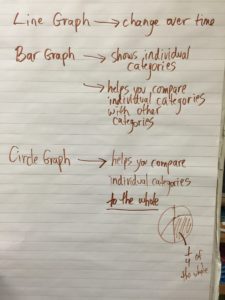 Line Graph → change over time
Bar Graph → shows individual
categories
→ helps you compare
individual categories
with other
categories
Circle Graph → helps you compare
individual categories
to the whole
1/4 of
the whole